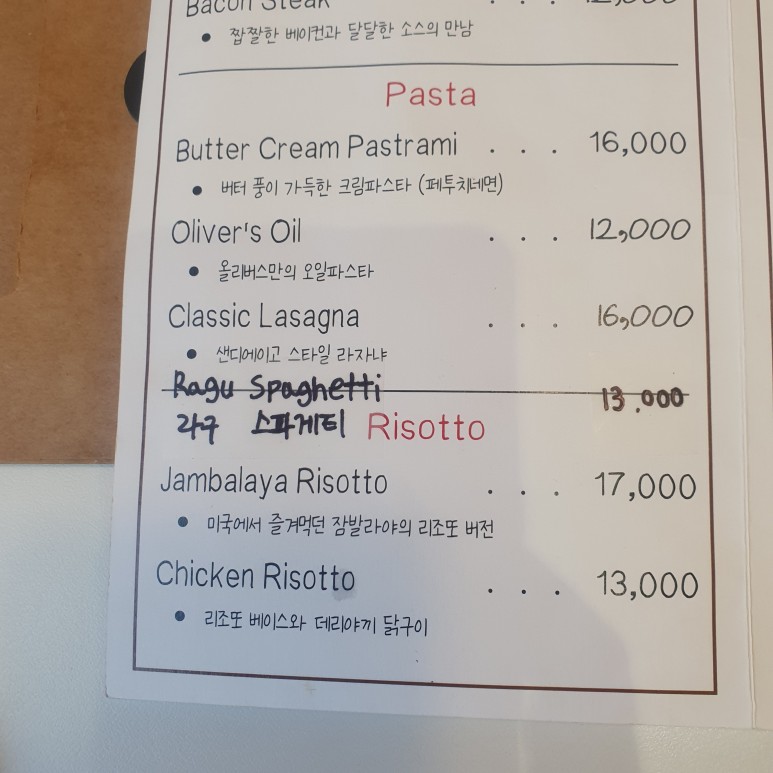 Bacon Steak . . . 12,000
• 짭짤한 베이컨과 달달한 소스의 만남
Pasta
Butter Cream Pastrami . . . 16,000
• 버터 풍이 가득한 크림파스타 (페투치네면)
Oliver's Oil . . . 12,000
• 올리버스만의 오일파스타
Classic Lasagna . . . 16,000
• 샌디에이고 스타일 라자냐
Ragu Spaghetti 13.000
라구 스파게티
Risotto
Jambalaya Risotto . . . 17,000
• 미국에서 즐겨먹던 잠발라야의 리조또 버전
Chicken Risotto . . . 13,000
• 리조또 베이스와 데리야끼 닭구이